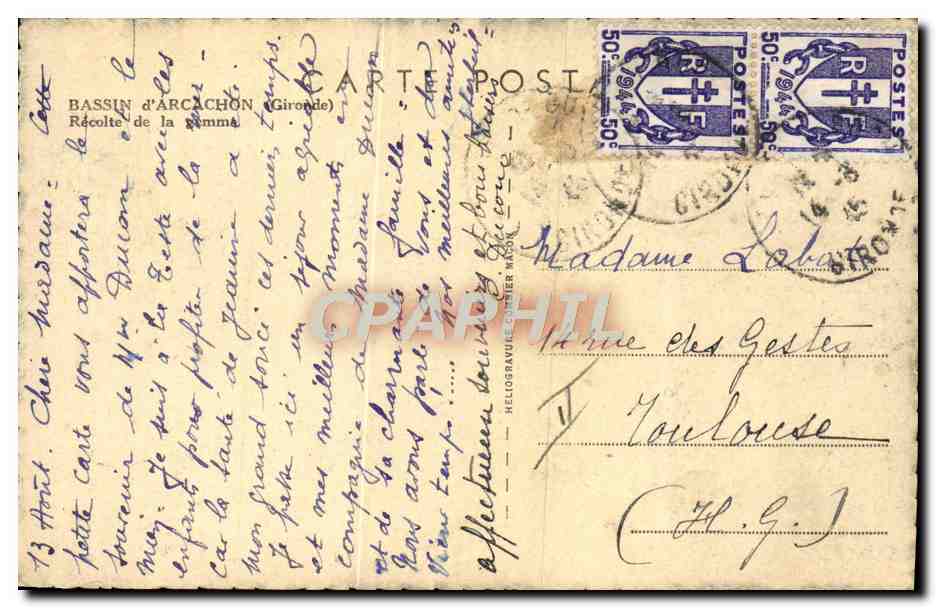 CARTE POSTA
BASSIN d'ARCACHON (Gironde)
Récolte de la gemme
13 Août. Chère madame: Cette
petite carte vous apportera le
souvenir de Mr Ducom et le
mien. Je suis à La Teste avec les
enfants pour profiter de la mer
car la santé de Jeanine a été
mon grand souci ces derniers temps.
Je passe ici un séjour agréable
et mes meilleurs moments en
compagnie de madame Ducom
et de sa charmante famille.
Nous avons parlé de Vous et du
Vieux temps..... Nos meilleures amitiés
affectueux souvenirs et bons baisers
Ducom
HELIOGRAVURE COMBIER MACON
50c POSTES RF 1944 50c
50c POSTES RF 1944 50c
GIRONDE
GIRONDE
14 -8 45
GIRONDE
Madame Labart
14 rue des Gestes
Toulouse
(H.G.)
II
CPAPHIL